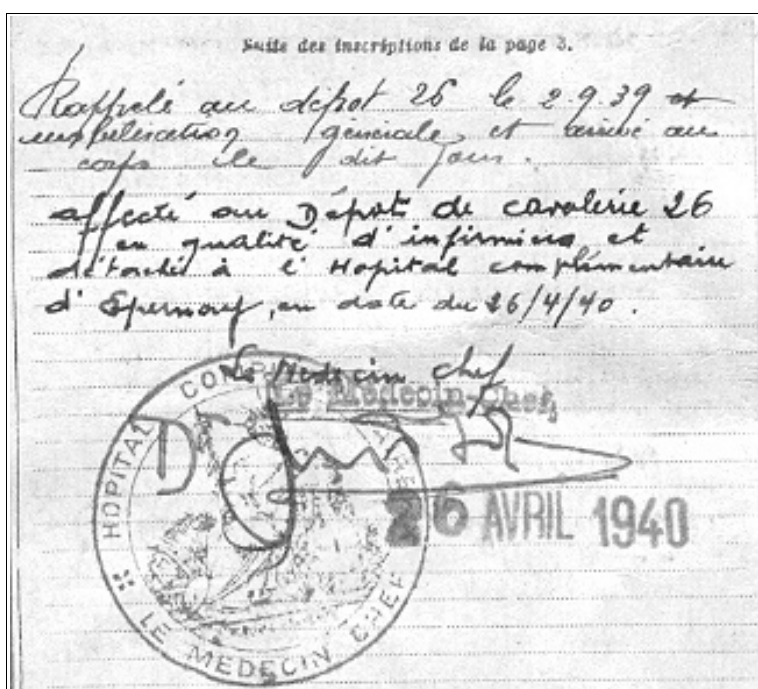 Suite des inscriptions de la page 3.
Rappelé au dépot 26 le 2.9.39
mobilisation générale, et arrivé au
corps le dit jour.
affecté au Dépôt de cavalerie 26
en qualité d'infirmiers et
détaché à l'Hopital complémentaire
d'Epernay, en date du 26/4/40.
Le Medecin Chef
Le Médecin-Chef,
Dr
26 AVRIL 1940
HOPITAL
LE MEDECIN CHEF